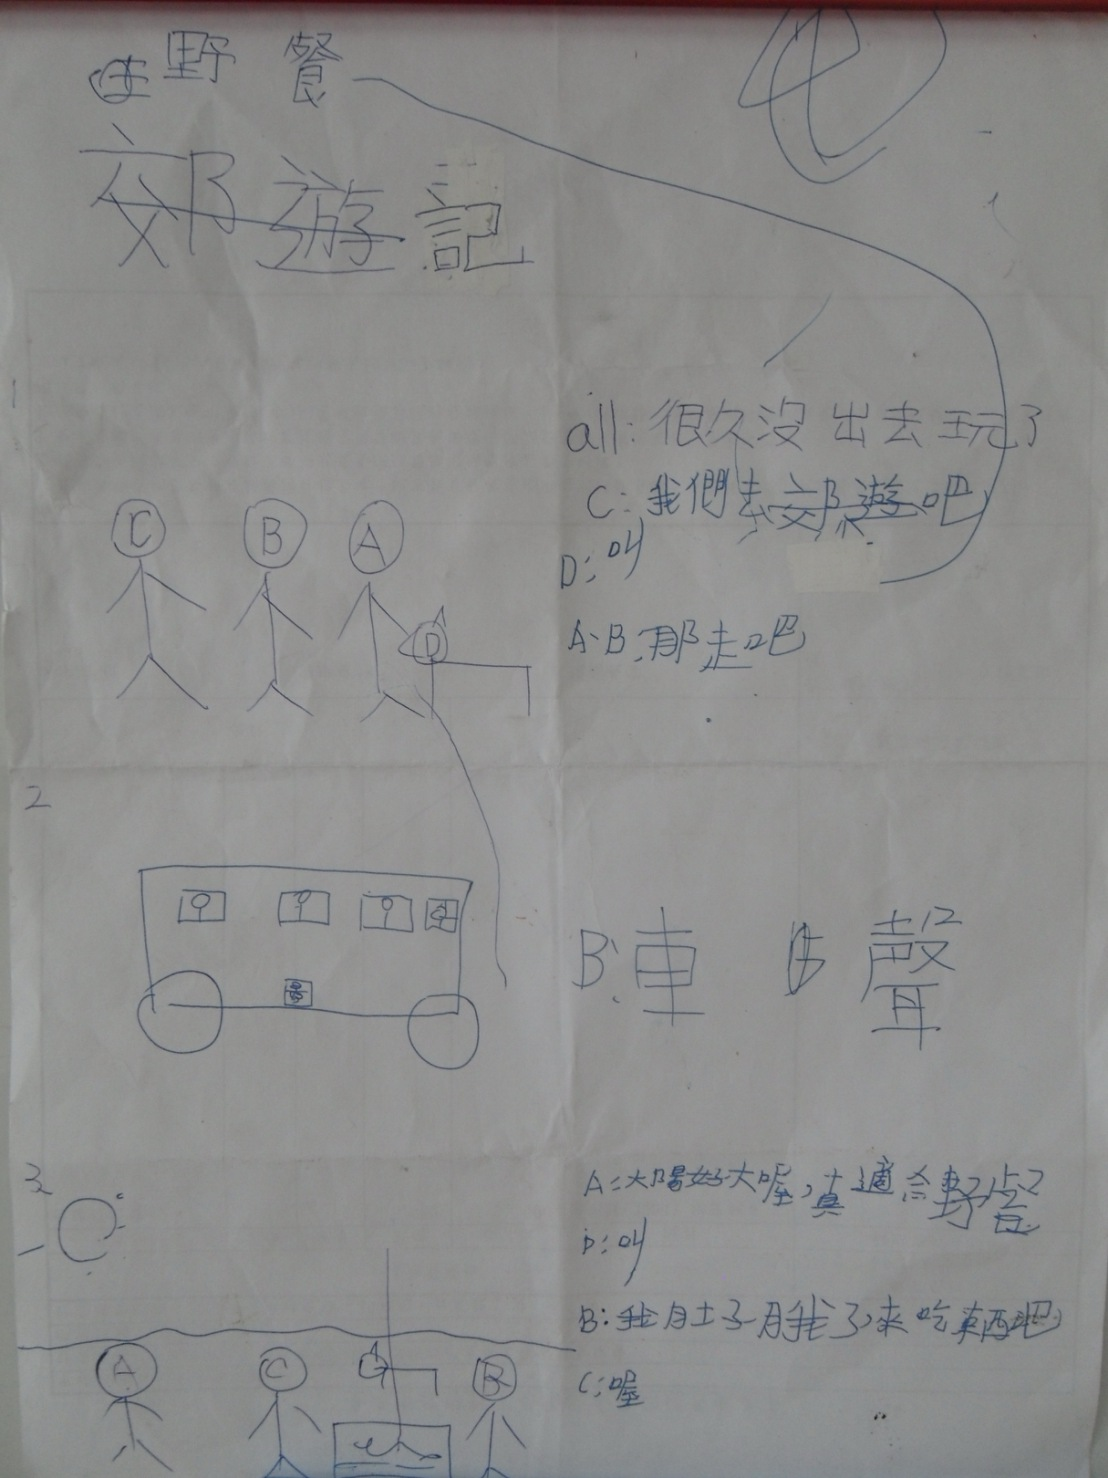 野餐
郊遊記
1
all: 很久沒出去玩了
C: 我們去郊遊吧
D: 叫
A.B: 那走吧
C B A D
2
B: 車 聲
3
A: 太陽好大喔,真適合野餐
D: 叫
B: 我肚子餓了,來吃東西吧
C: 喔
A C B